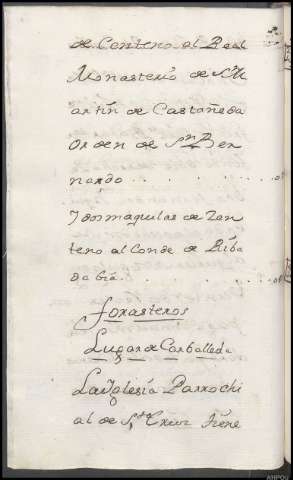 de Centeno al Real
Monasterio de Sn M
artín de Castañeda
orden de Sn Ber
nardo
Y dos maquilas de Zen
teno al Conde de Riba
dabia
forasteros
Lugar de Carballeda
La Yglesia Parrochi
al de Sta Cruz tiene
AHPOU